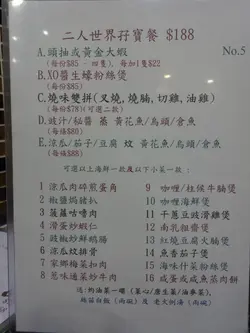 二人世界孖寶餐 $188
No.5
A. 頭抽或黃金大蝦
(每份$85 - 四隻), 每加1隻$22
B. XO醬生蠔粉絲煲
(每份$85)
C. 燒味雙拼(叉燒, 燒腩, 切雞, 油雞)
(每份$78)(可選二款)
D. 豉汁/秘醬 蒸 黃花魚/烏頭/倉魚
(每條$80)
E. 涼瓜/茄子/豆腐 炆 黃花魚/烏頭/倉魚
(每條$88)
可選以上海鮮一款及以下小菜一款:
1 涼瓜肉碎煎蛋角
2 椒鹽焗豬扒
3 菠蘿咕嚕肉
4 滑蛋炒蝦仁
5 豉椒炒鮮鵝腸
6 涼瓜炆排骨
7 家鄉梅菜扣肉
8 惹味通菜炒牛肉
9 咖喱/柱侯牛腩煲
10 咖喱海鮮煲
11 干蔥豆豉滑雞煲
12 南乳粗齋煲
13 紅燒豆腐火腩煲
14 魚香茄子煲
15 海味什菜粉絲煲
16 咸蛋咸魚蒸肉餅
送: 時油菜一碟 (菜心/唐生菜/油麥菜),
絲苗白飯 (兩碗) 及 老火例湯 (兩碗)